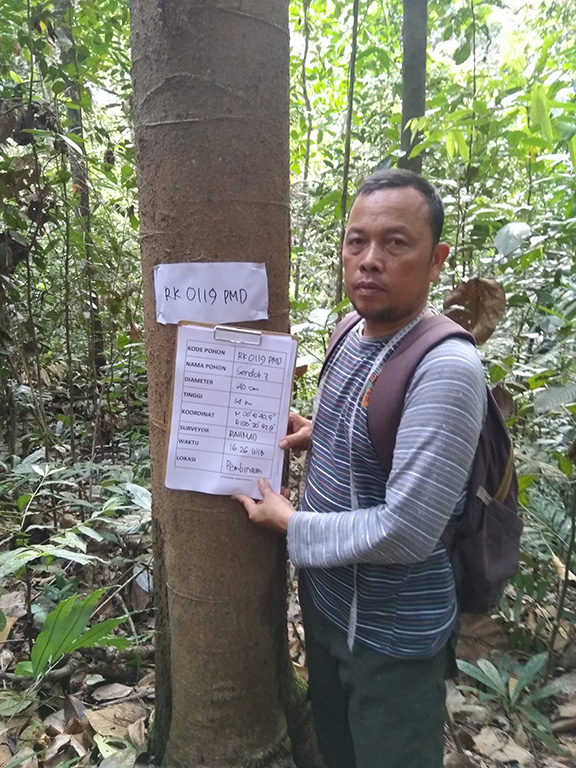 RK 0119 PMD
KODE POHON RK 0119 PMD
NAMA POHON Sendok2
DIAMETER 40 cm
TINGGI 14 m
KOORDINAT N 00°
E 100° 20'
SURVEYOR RAHMAD
WAKTU 16:26 WIB
LOKASI Pembinaan